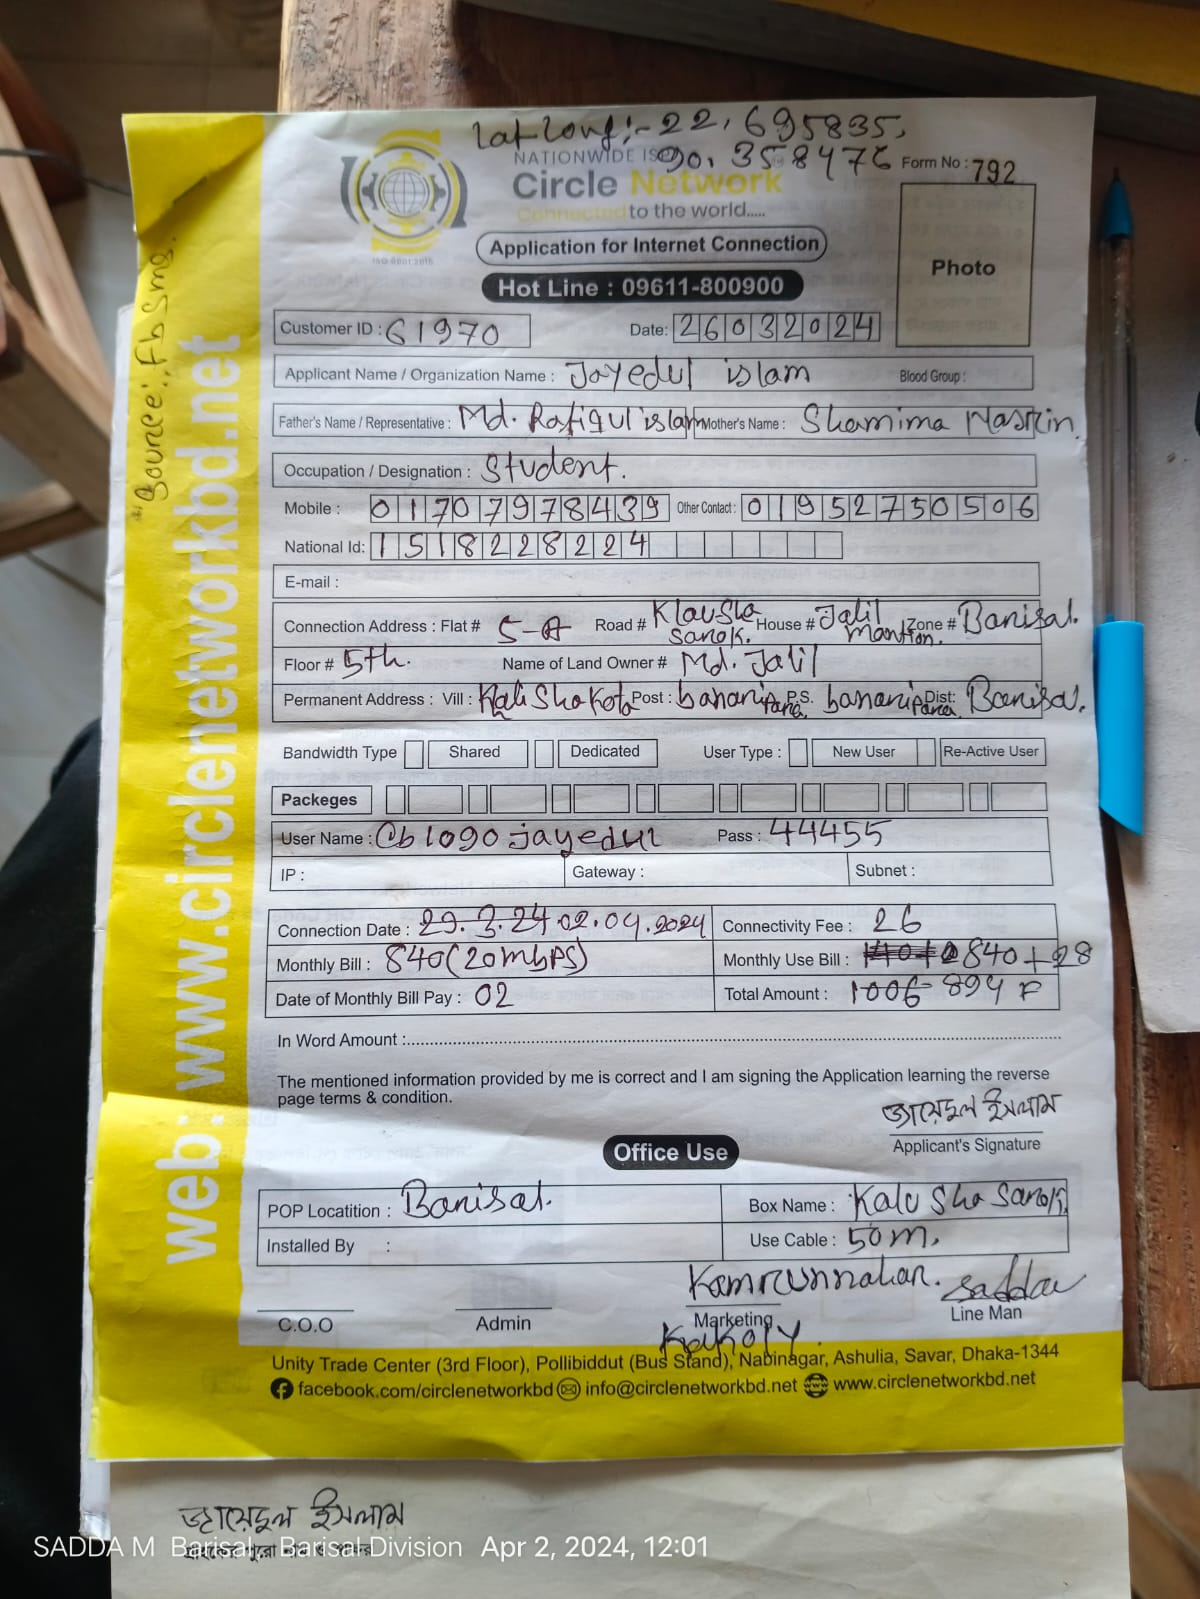 Lat Long:- 22.695835,
90.358476
NATIONWIDE IS
Form No : 792
Circle Network
Connected to the world.....
ISO 9001:2015
Application for Internet Connection
Photo
Hot Line : 09611-800900
Customer ID : 61970 Date: 26032024
Applicant Name / Organization Name : Jayedul islam Blood Group :
Father's Name / Representative : Md. Rafiqul islam Mother's Name : Shamima Nasrin
Occupation / Designation : Student.
Mobile : 01707978439 Other Contact : 01952750506
National Id: 1518228224
E-mail :
Connection Address : Flat # 5-A Road # Klausha Sarok. House # Jalil Mantion. Zone # Barisal.
Floor # 5th. Name of Land Owner # Md. Jalil
Permanent Address : Vill : Kali Shakota Post : banaripara P.S. banaripara Dist: Barisal.
Bandwidth Type Shared Dedicated User Type : New User Re-Active User
Packeges
User Name : Cb1090jayedul Pass : 44455
IP : Gateway : Subnet :
Connection Date : 29.3.24 02.04.2024 Connectivity Fee : 26
Monthly Bill : 840 (20mbps) Monthly Use Bill : 840+28
Date of Monthly Bill Pay : 02 Total Amount : 1006 894
In Word Amount :
The mentioned information provided by me is correct and I am signing the Application learning the reverse
page terms & condition.
জায়েদুল ইসলাম
Applicant's Signature
Office Use
POP Locatition : Barisal. Box Name : Kalu Sha Sarok
Installed By : Use Cable : 50m.
Kamrunnahar. Sadda
C.O.O Admin Marketing Line Man
Kakoly
Unity Trade Center (3rd Floor), Pollibiddut (Bus Stand), Nabinagar, Ashulia, Savar, Dhaka-1344
facebook.com/circlenetworkbd info@circlenetworkbd.net www.circlenetworkbd.net
web: www.circlenetworkbd.net
"Source: Fb smg.
জায়েদুল ইসলাম
SADDA M Barisal, Barisal Division Apr 2, 2024, 12:01